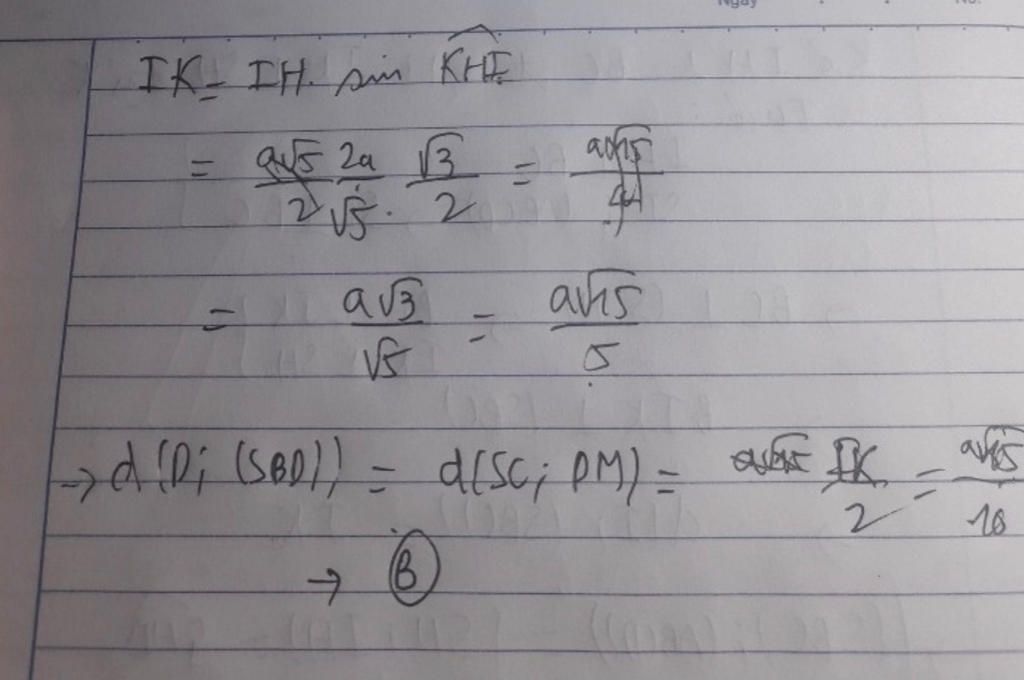 Ngày No.
IK = IH. sin KHI
= 2a/√5 . √3/2
= a√3/√5 = a√15/5
→ d(D; (SBD)) = d(SC; DM) = IK/2 = a√15/10
→ B